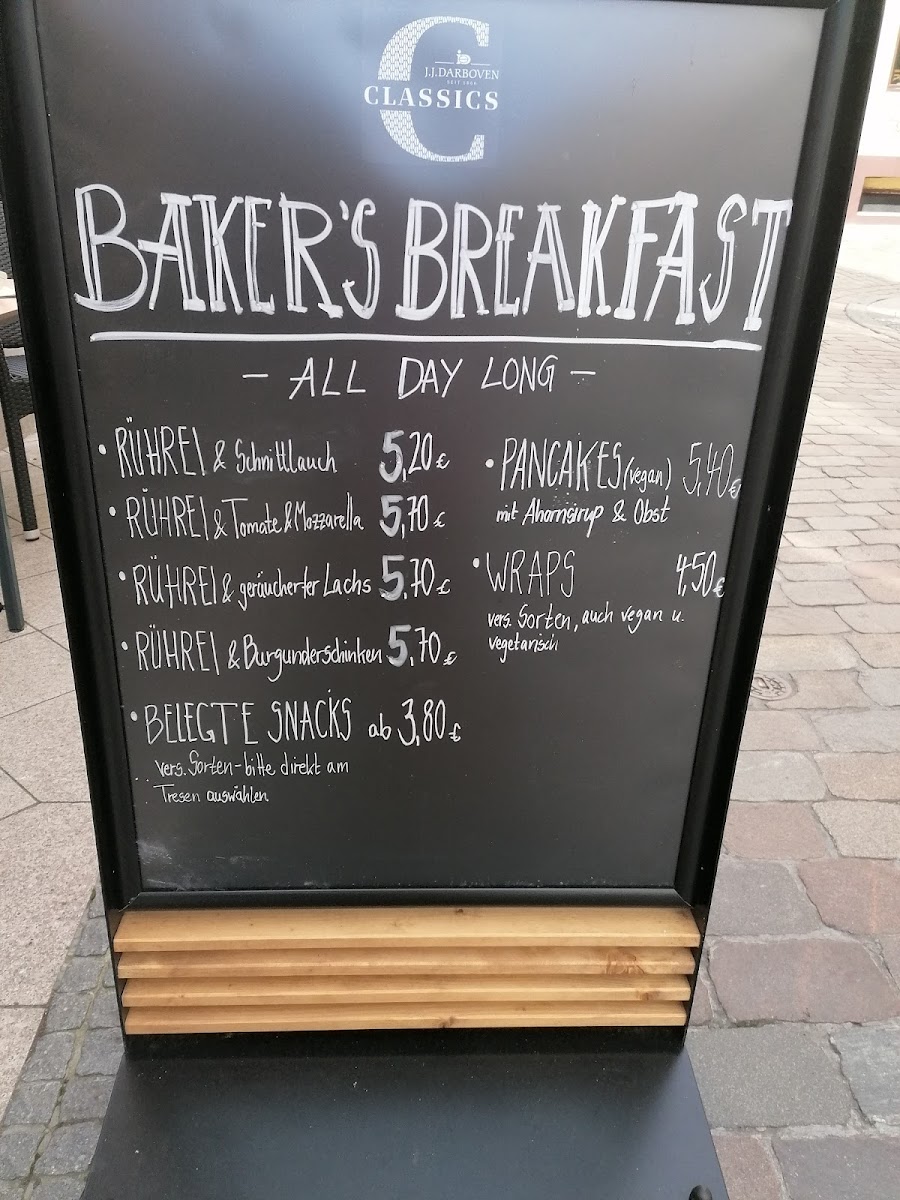 J.J.DARBOVEN
SEIT 1866
CLASSICS
BAKER'S BREAKFAST
- ALL DAY LONG -
• RÜHREI & Schnittlauch 5,20 €
• RÜHREI & Tomate & Mozzarella 5,70 €
• RÜHREI & geräucherter Lachs 5,70 €
• RÜHREI & Burgunderschinken 5,70 €
• BELEGTE SNACKS ab 3,80 €
vers. Sorten - bitte direkt am
Tresen auswählen
• PANCAKES (vegan) 5,40 €
mit Ahornsirup & Obst
• WRAPS 4,50 €
vers. Sorten, auch vegan u.
vegetarisch